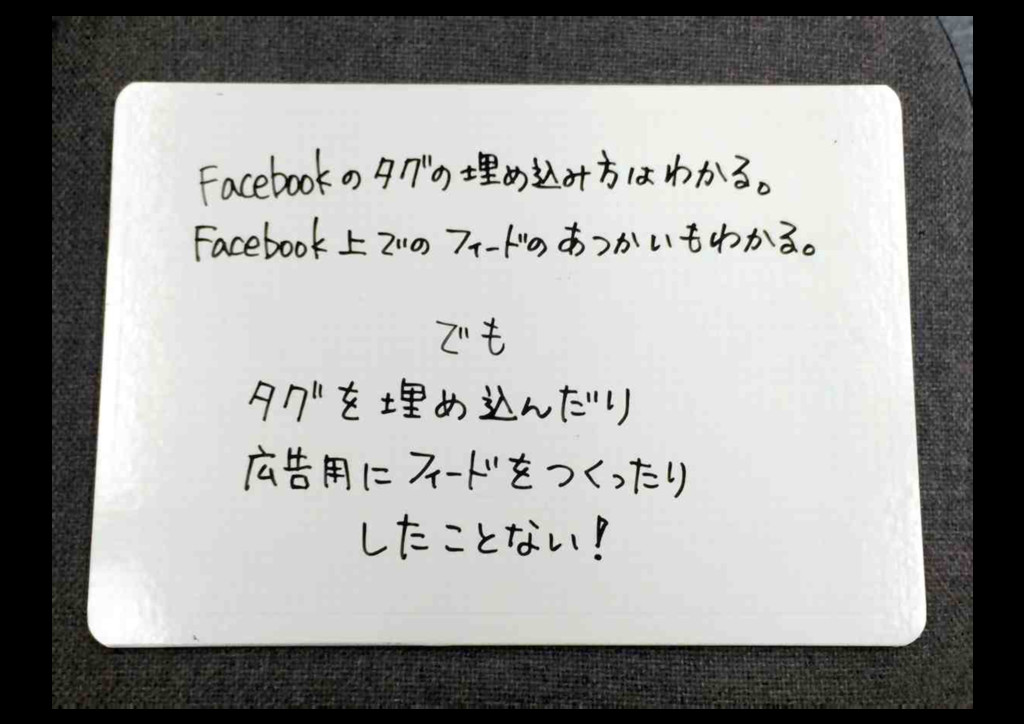 Facebookのタグの埋め込み方はわかる。
Facebook上でのフィードのあつかいもわかる。
でも
タグを埋め込んだり
広告用にフィードをつくったり
したことない！